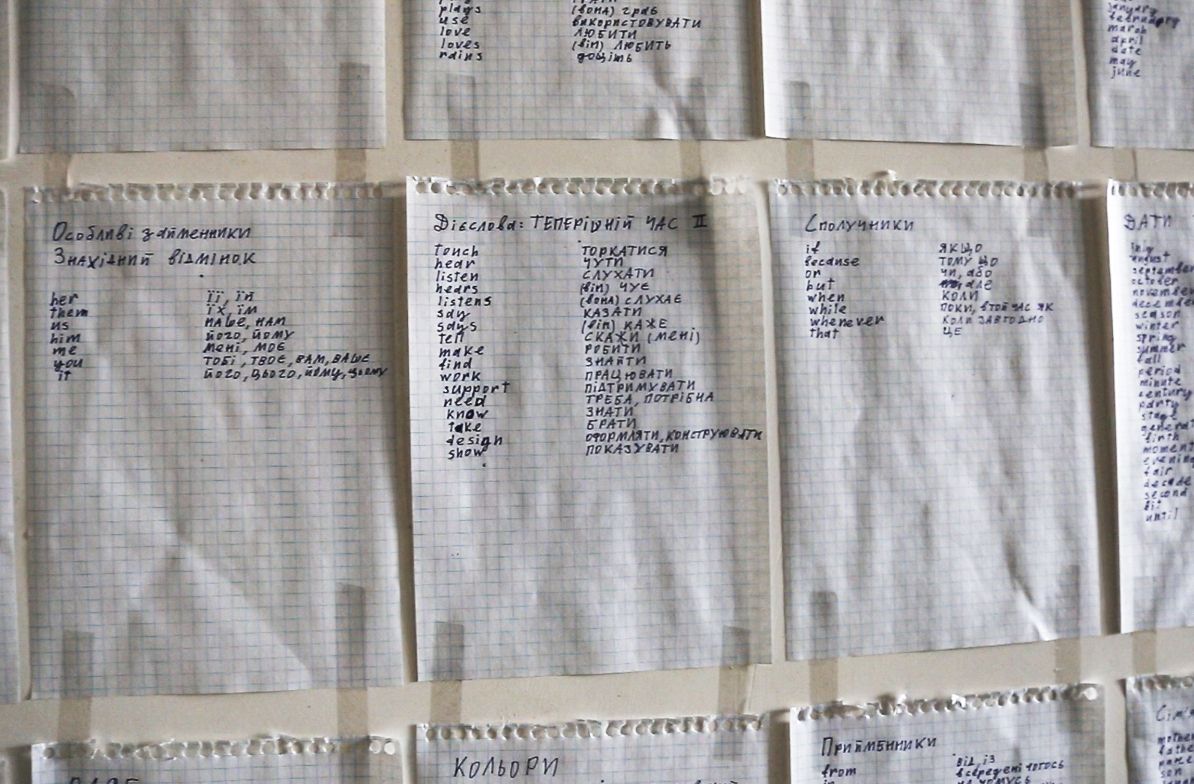 plays (вона) грає
use використовувати
love любити
loves (він) любить
rains дощить
january
february
march
april
date
may
june
Особливі займенники
Знахідний відмінок
her її, їй
them їх, їм
us наше, нам
him його, йому
me мені, моє
you тобі, твоє, вам, ваше
it його, цього, йому, цьому
Дієслова: теперішній час II
touch торкатися
hear чути
listen слухати
hears (він) чує
listens (вона) слухає
say казати
says (він) каже
tell скажи (мені)
make робити
find знайти
work працювати
support підтримувати
need треба, потрібна
know знати
take брати
design оформляти, конструювати
show показувати
Сполучники
if якщо
because тому що
or чи, або
but але
when коли
while поки, в той час як
whenever коли завгодно
that це
Дати
july
august
september
october
november
december
season
winter
spring
summer
fall
period
minute
century
party
stage
generat
birth
moment
evening
fair
decade
second
bit
until
Кольори
Прийменники
from від, із
in всередені чогось
mother